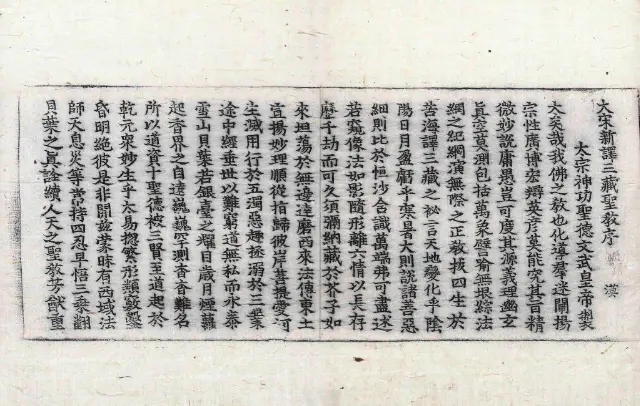 大宋新譯三藏聖教序 漢
太宗神功聖德文武皇帝製
大矣哉我佛之教也化導羣迷闡揚
宗性廣博宏辯英彥莫能究其旨精
微妙說庸愚豈可度其源義理幽玄
真空莫測包括萬象譬喻無垠綜法
網之紀綱演無際之正教拔四生於
苦海譯三藏之祕言天地變化乎陰
陽日月盈虧乎寒暑大則說諸善惡
細則比於恒沙含識萬端弗可盡述
若窺像法如影隨形離六情以長存
歷千劫而可久須彌納藏於芥子如
來坦蕩於無邊達磨西來法傳東土
宣揚妙理順從指歸彼岸菩提愛河
生滅用行於五濁惡趣拯溺於三業
途中經垂世以難窮道無私而永泰
雪山貝葉若銀臺之耀目歲月煙蘿
起香界之自遠巍巍罕測杳杳難名
所以道資十聖德被三賢至道起於
乾元衆妙生乎太易揔繁形類竅鑿
昏明絕彼是非開茲蒙昧有西域法
師天息災等常持四忍早悟三乘翻
貝葉之真詮續人天之聖教芳猷重